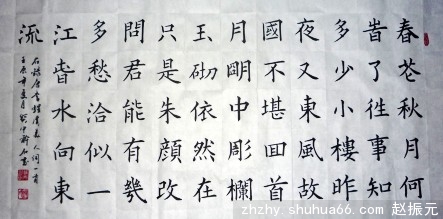 春芲秋月何
旹了徃事知
多少小樓昨
夜又東風故
國不堪回首
月眀中彫欄
玉砌依然在
只是朱顔改
問君能有幾
多愁洽似一
江旾水向東
流
右錄唐李煜虞美人詞一首
壬辰年夏月
zhzhy.shuhua66.com 赵振元